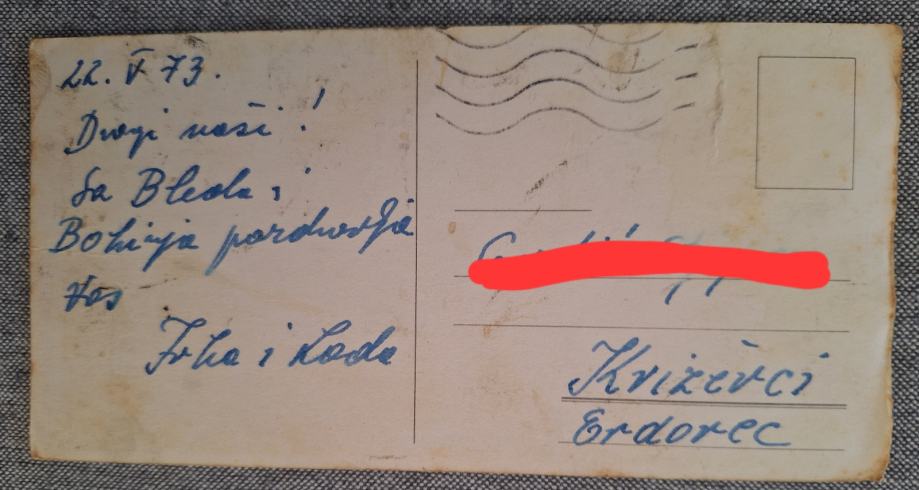 22. V 73.
Dragi naši!
Sa Bleda i
Bohinja pozdravlja
Vas
i Lada
Križevci
Erdovec